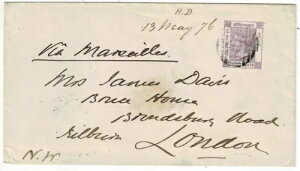 H.D.
13 May 76
Via Marseilles.
Mrs James Davis
Bruce House
Brondesbury Road
Kilburn London
N.W